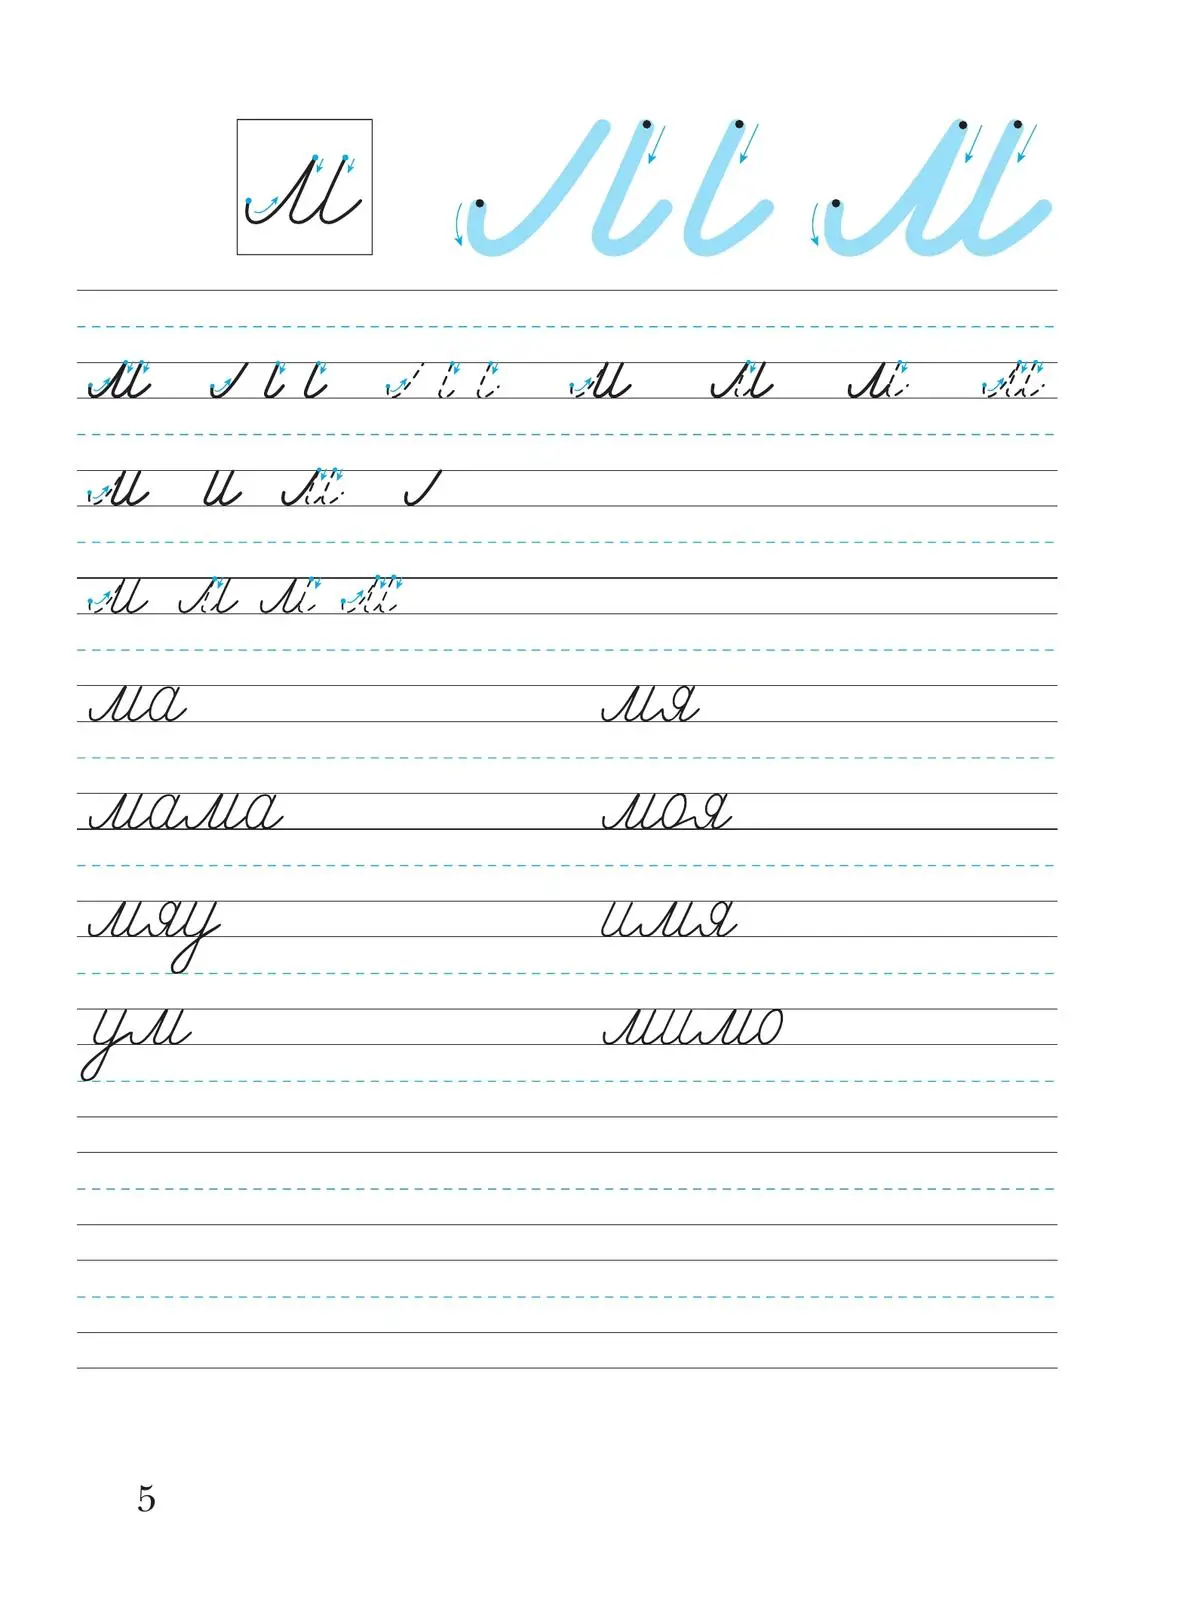 м
м м
м м м м м м
м и м
м м м м
ма мя
мама моя
мяу имя
ум мимо
5